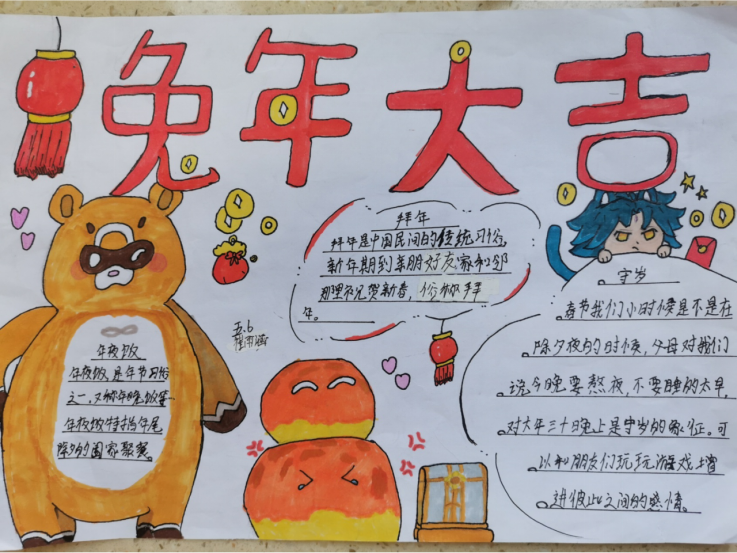 兔年大吉
拜年
拜年是中国民间的传统习俗,
新年期到亲朋好友家和邻
那里祝贺新春,俗称拜
年。
守岁
春节我们小时候是不是在
除夕夜的时候,父母对我们
说今晚要熬夜,不要睡的太早,
对大年三十晚上是守岁的象征。可
以和朋友们玩玩游戏增
进彼此之间的感情。
五.6
年夜饭
年夜饭,是年节习俗
之一,又称年晚饭
年夜饭特指年尾
除夕的 聚餐。